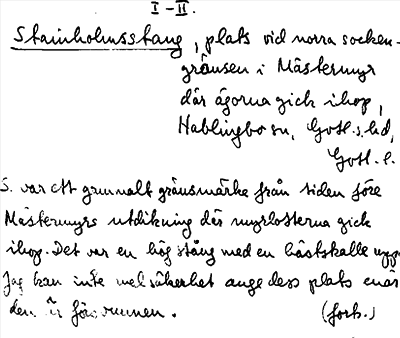 I-II.
Stainholmsstang, plats vid norra socken-
gränsen i Mästermyr
där ägorna gick ihop,
Hablingbo sn, Gotl. s. hd,
Gotl. l.
S. var ett gammalt gränsmärke från tiden före
Mästermyrs utdikning där myrlotterna gick
ihop. Det var en hög stång med en hästskalle uppe.
Jag kan inte med säkerhet ange dess plats enär
den är försvunnen. (forts.)